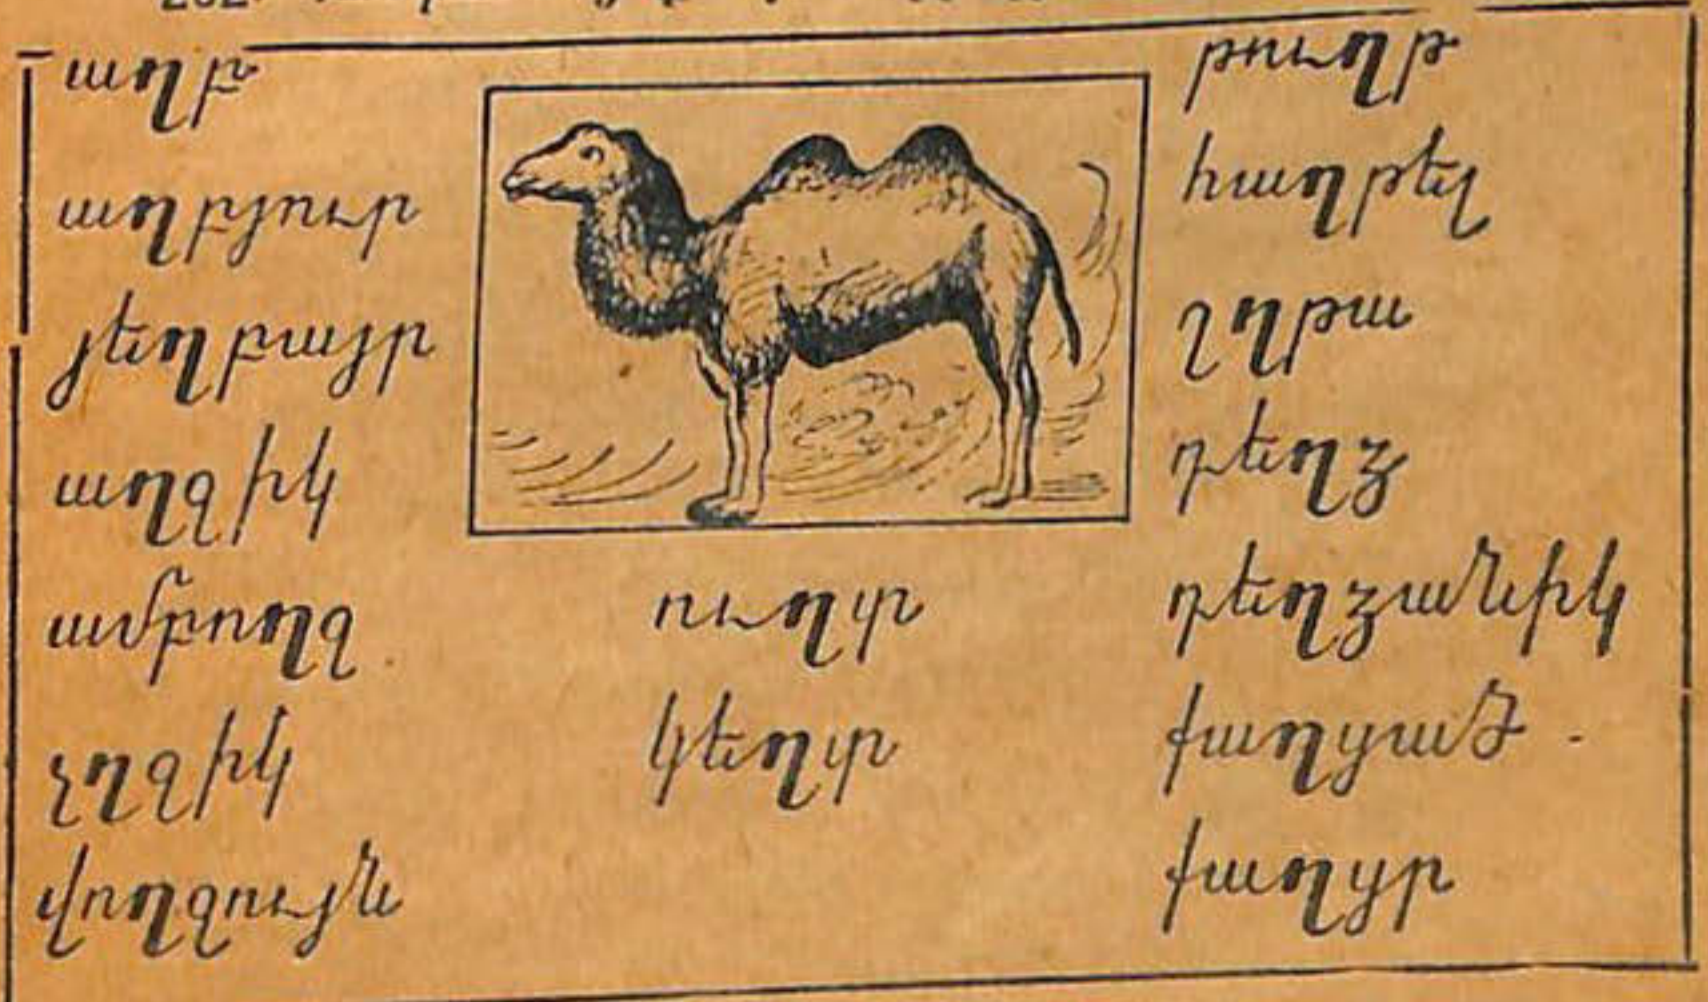 աղբ
աղբյուր
յեղբայր
աղջիկ
ամբողջ
չղջիկ
վողջույն
ուղտ
կեղտ
թուղթ
հաղթել
շղթա
դեղձ
դեղձանիկ
քաղցած
քաղցր